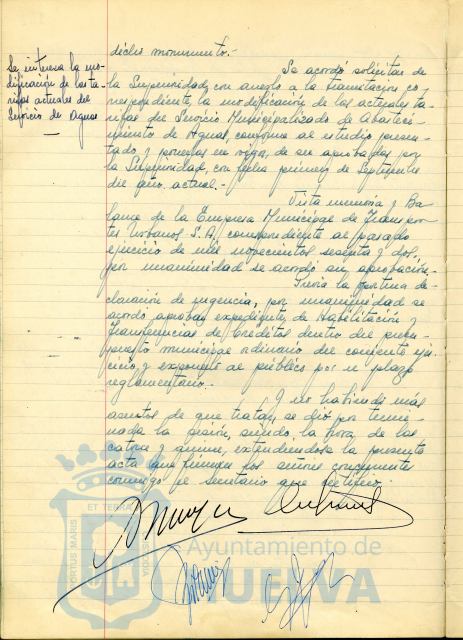 dicho monumento.-
Se interesa la mo-
dificación de las ta-
rifas actuales del
Servicio de Aguas
Se acordó solicitar de
la Superioridad, con arreglo a la tramitación co-
rrespondiente, la modificación de las actuales ta-
rifas del Servicio Municipalizado de Abasteci-
miento de Aguas, conforme al estudio presen-
tado y ponerlas en vigor, de ser aprobadas por
la Superioridad, con fecha primero de Septiembre
del año actual.-
Vista memoria y Ba-
lance de la Empresa Municipal de Transpor-
tes Urbanos S.A, correspondiente al pasado
ejercicio de mil novecientos sesenta y dos,
por unanimidad se acordó su aprobación.-
Previa la oportuna de-
claración de urgencia, por unanimidad se
acordó aprobar expediente de Habilitación y
Transferencias de Créditos dentro del presu-
puesto municipal ordinario del corriente ejer-
cicio, y exponerle al público por el plazo
reglamentario.-
Y no habiendo más
asuntos de que tratar, se dió por termi-
nada la sesión, siendo la hora de las
catorce y quince, extendiéndose la presente
acta que firman los señores concurrentes
conmigo el Secretario que certifico.
ET TERRAE
PORTUS MARIS
Ayuntamiento de
HUELVA